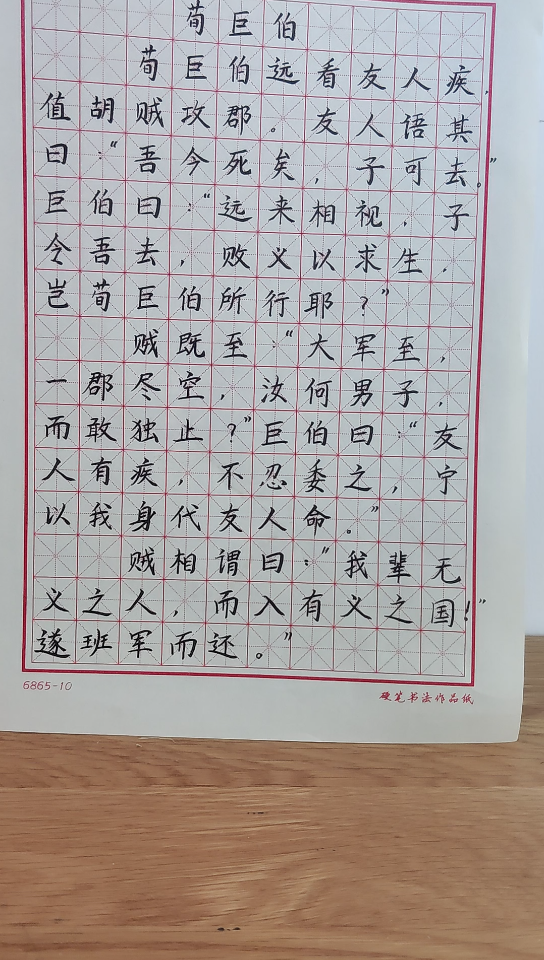 荀巨伯
荀巨伯远看友人疾，
值胡贼攻郡。友人语其
曰：“吾今死矣，子可去。”
巨伯曰：“远来相视，子
令吾去，败义以求生，
岂荀巨伯所行耶？”
贼既至：“大军至，
一郡尽空，汝何男子，
而敢独止？”巨伯曰：“友
人有疾，不忍委之，宁
以我身代友人命。”
贼相谓曰：“我辈无
义之人，而入有义之国！”
遂班军而还。”
6865-10
硬笔书法作品纸